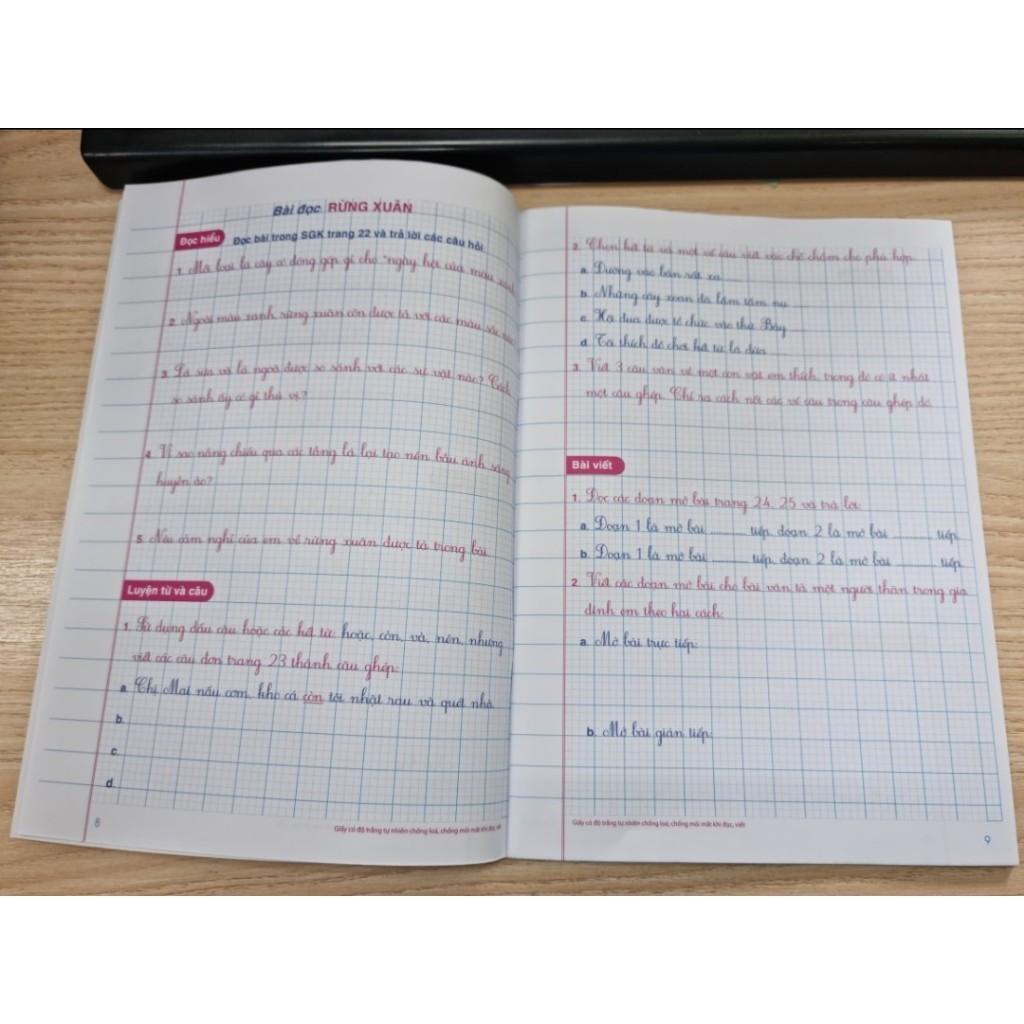 Bài đọc RỪNG XUÂN
Đọc hiểu Đọc bài trong SGK trang 22 và trả lời các câu hỏi.
1. Mỗi loại lá cây có đóng góp gì cho "ngày hội của màu xanh
2. Ngoài màu xanh, rừng xuân còn được tả với các màu sắc nào
3. Lá sưa và lá ngoã được so sánh với các sự vật nào? Cách
so sánh ấy có gì thú vị?
4. Vì sao nắng chiếu qua các tầng lá lại tạo nên bầu ánh sáng
huyền ảo?
5. Nêu cảm nghĩ của em về rừng xuân được tả trong bài.
Luyện từ và câu
1. Sử dụng dấu câu hoặc các kết từ: hoặc, còn, và, nên, nhưng
viết các câu đơn trang 23 thành câu ghép:
a. Chị Mai nấu cơm, kho cá còn tôi nhặt rau và quét nhà.
b.
c.
d.
8
Giấy có độ trắng tự nhiên chống loá, chống mỏi mắt khi đọc, viết
2. Chọn kết từ và một vế câu viết vào chỗ chấm cho phù hợp.
a. Đường vào bản rất xa
b. Những cây xoan đã lấm tấm nụ
c. Hội đua được tổ chức vào thứ Bảy
d. Tớ thích đồ chơi kết từ lá dừa
3. Viết 3 câu văn về một con vật em thích, trong đó có ít nhất
một câu ghép. Chỉ ra cách nối các vế câu trong câu ghép đó.
Bài viết
1. Đọc các đoạn mở bài trang 24, 25 và trả lời:
a. Đoạn 1 là mở bài ......... tiếp, đoạn 2 là mở bài ......... tiếp.
b. Đoạn 1 là mở bài ......... tiếp, đoạn 2 là mở bài ......... tiếp.
2. Viết các đoạn mở bài cho bài văn tả một người thân trong gia
đình em theo hai cách.
a. Mở bài trực tiếp:
b. Mở bài gián tiếp:
Giấy có độ trắng tự nhiên chống loá, chống mỏi mắt khi đọc, viết
9